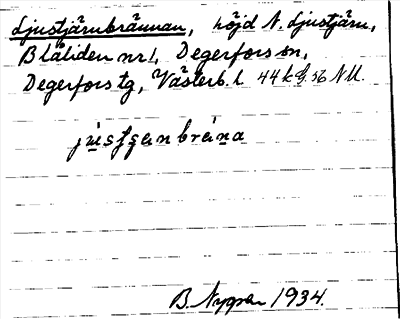 Ljustjärnbrännan, höjd N. Ljustjärn,
Blåliden nr 1, Degerfors sn,
Degerfors tg, Västerb. l. 44 k 56 NU.
B. Nygren 1934.